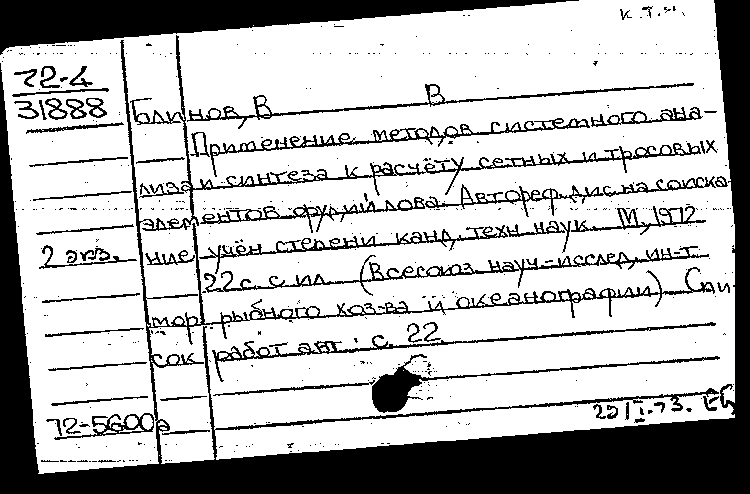 к.т.н.
72-4
31888
Блинов, В В
Применение методов системного ана-
лиза и синтеза к расчёту сетных и тросовых
элементов орудий лова. Автореф. дис. на соиска-
2 экз. ние учён степени канд. техн. наук. М, 1972
22 с. с ил. (Всесоюз. науч.-исслед. ин-т
мор. рыбного хоз-ва и океанографии) Спи-
сок работ авт.: с. 22
72-5600а
22/I-73. ЕБ